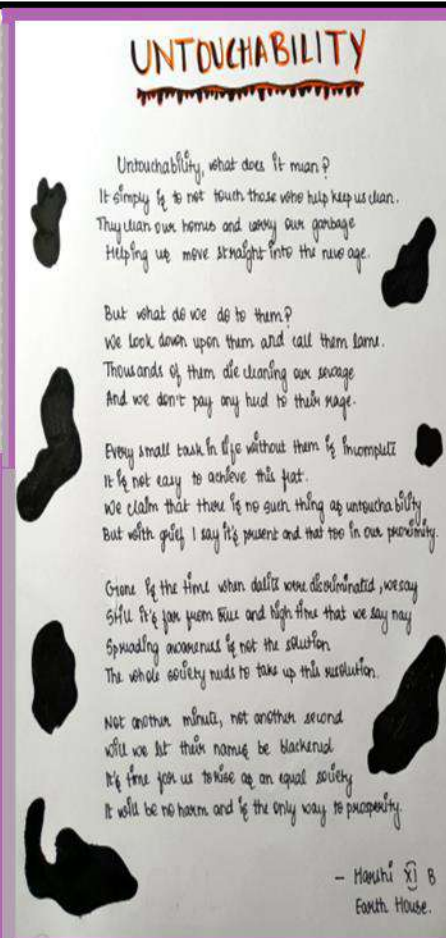 UNTOUCHABILITY
Untouchability, what does it mean?
It simply is to not touch those who help keep us clean.
They clean our homes and carry our garbage
Helping us move straight into the new age.
But what do we do to them?
We look down upon them and call them lame.
Thousands of them die cleaning our sewage
And we don't pay any heed to their rage.
Every small task in life without them is incomplete
It is not easy to achieve this feat.
We claim that there is no such thing as untouchability
But with grief I say it's present and that too in our proximity.
Gone is the time when dalits were discriminated, we say
Still it's far from true and high time that we say nay
Spreading awareness is not the solution
The whole society needs to take up this resolution.
Not another minute, not another second
will we let their names be blackened
It's time for us to rise as an equal society
It will be no harm and is the only way to prosperity.
- Harshi XI B
Earth House.